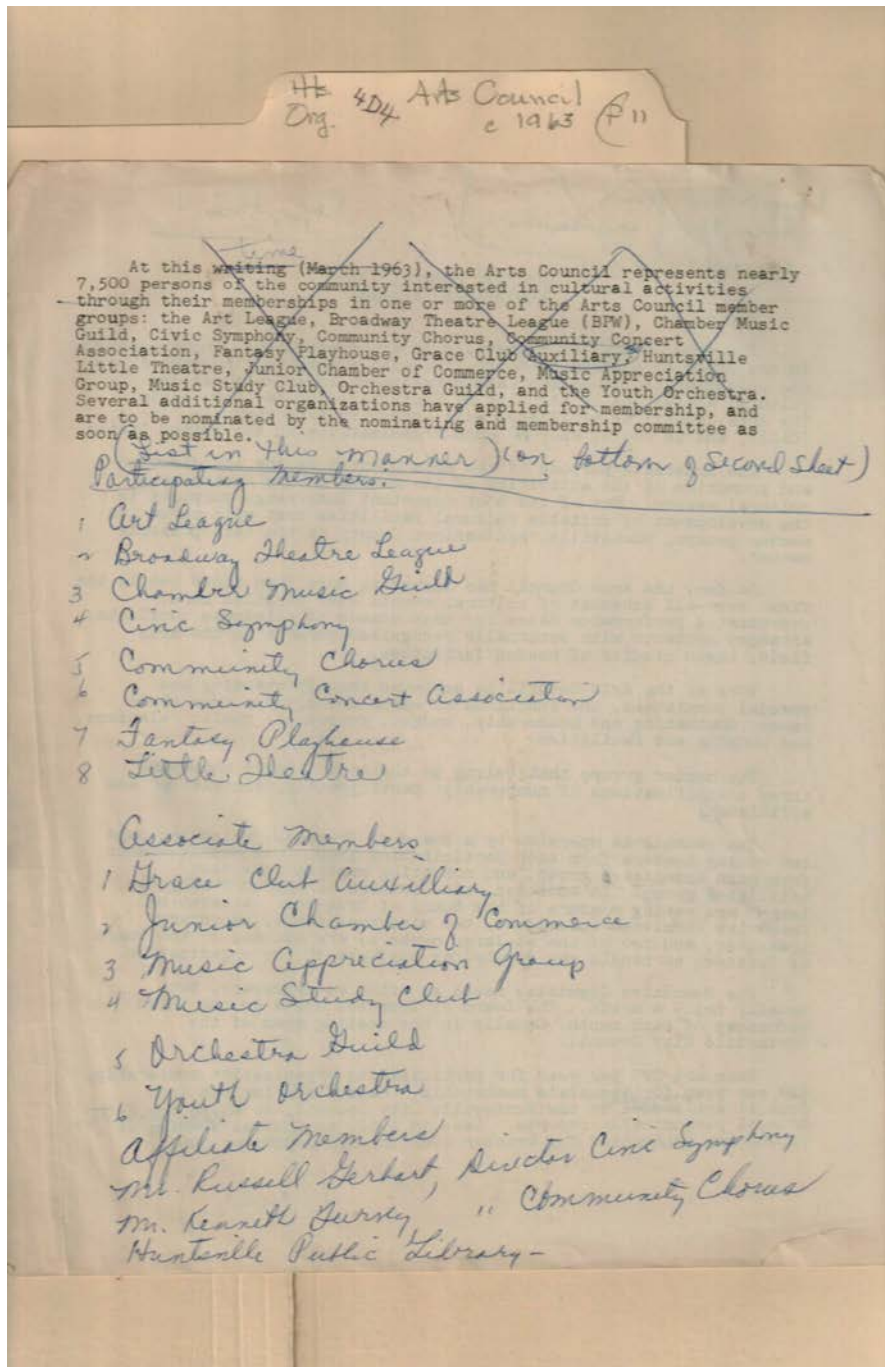 Hts. 4D4 Arts Council
Org. c 1963 P 11
time
At this writing (March 1963), the Arts Council represents nearly
7,500 persons of the community interested in cultural activities
through their memberships in one or more of the Arts Council member
groups: the Art League, Broadway Theatre League (BPW), Chamber Music
Guild, Civic Symphony, Community Chorus, Community Concert
Association, Fantasy Playhouse, Grace Club Auxiliary, Huntsville
Little Theatre, Junior Chamber of Commerce, Music Appreciation
Group, Music Study Club, Orchestra Guild, and the Youth Orchestra.
Several additional organizations have applied for membership, and
are to be nominated by the nominating and membership committee as
soon as possible.
(List in this manner) (on bottom of second sheet)
Participating Members:
1 Art League
2 Broadway Theatre League
3 Chamber Music Guild
4 Civic Symphony
5 Community Chorus
6 Community Concert Association
7 Fantasy Playhouse
8 Little Theatre
Associate Members
1 Grace Club Auxilliary
2 Junior Chamber of Commerce
3 Music Appreciation Group
4 Music Study Club
5 Orchestra Guild
6 Youth Orchestra
Affiliate Members
Mr. Russell Gerhart, Director Civic Symphony
Mr. Kenneth " Community Chorus
Huntsville Public Library -